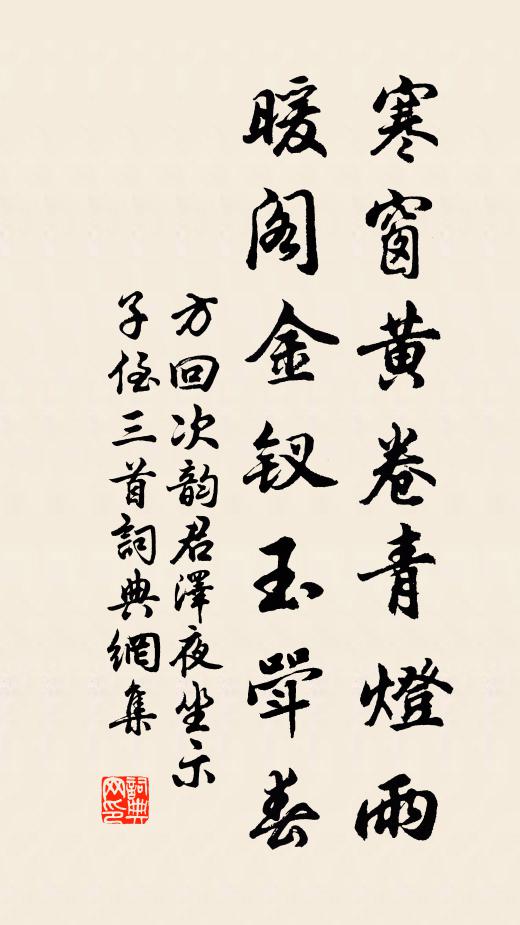 寒窗黄卷青燈雨
暖阁金钗玉斝春
方回次韵君澤夜坐示
子侄三首詞典網集
詞典
网印